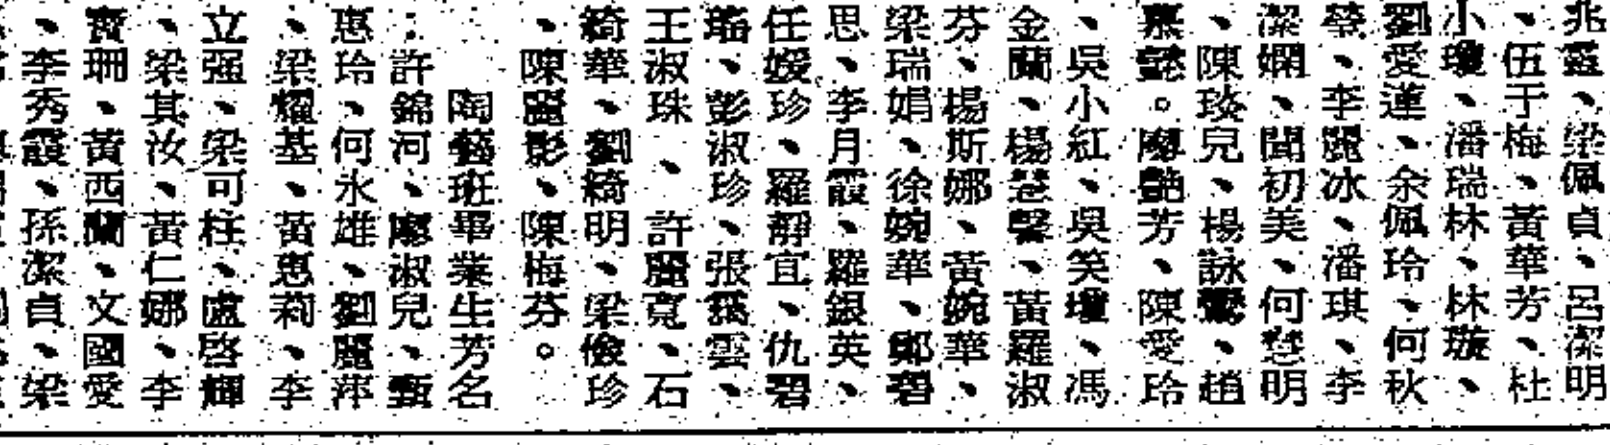 兆靈、梁佩貞、呂潔明
、伍于梅、黃華芳、杜
小瓊、潘瑞林、林璇、
劉愛蓮、余佩玲、何秋
、李麗冰、潘琪、李
潔嫻、聞初美、何慧明
、陳琰兒、楊詠鶯、趙
慕懿。廖艷芳、陳愛玲
、吳小紅、吳笑瓊、馮
金蘭、楊慧馨、黃羅淑
芬、楊斯娜、黃婉華、
梁瑞娟、徐婉華、鄭碧
思、李月霞、羅銀英、
任媛珍、羅靜宜、仇碧
瑤、彭淑珍、張雲、
王淑珠、許麗寬、石
綺華、劉綺明、梁儉珍
、陳麗影、陳梅芬。
陶藝班畢業生芳名
：許錦河、廖淑兒、甄
惠玲、何永雄、劉麗萍
、梁耀基、黃惠莉、李
立强、梁可柱、盧啓輝
、梁其汝、黃仁娜、李
寶珊、黃西蘭、文國愛
、李秀霞、孫潔貞、梁